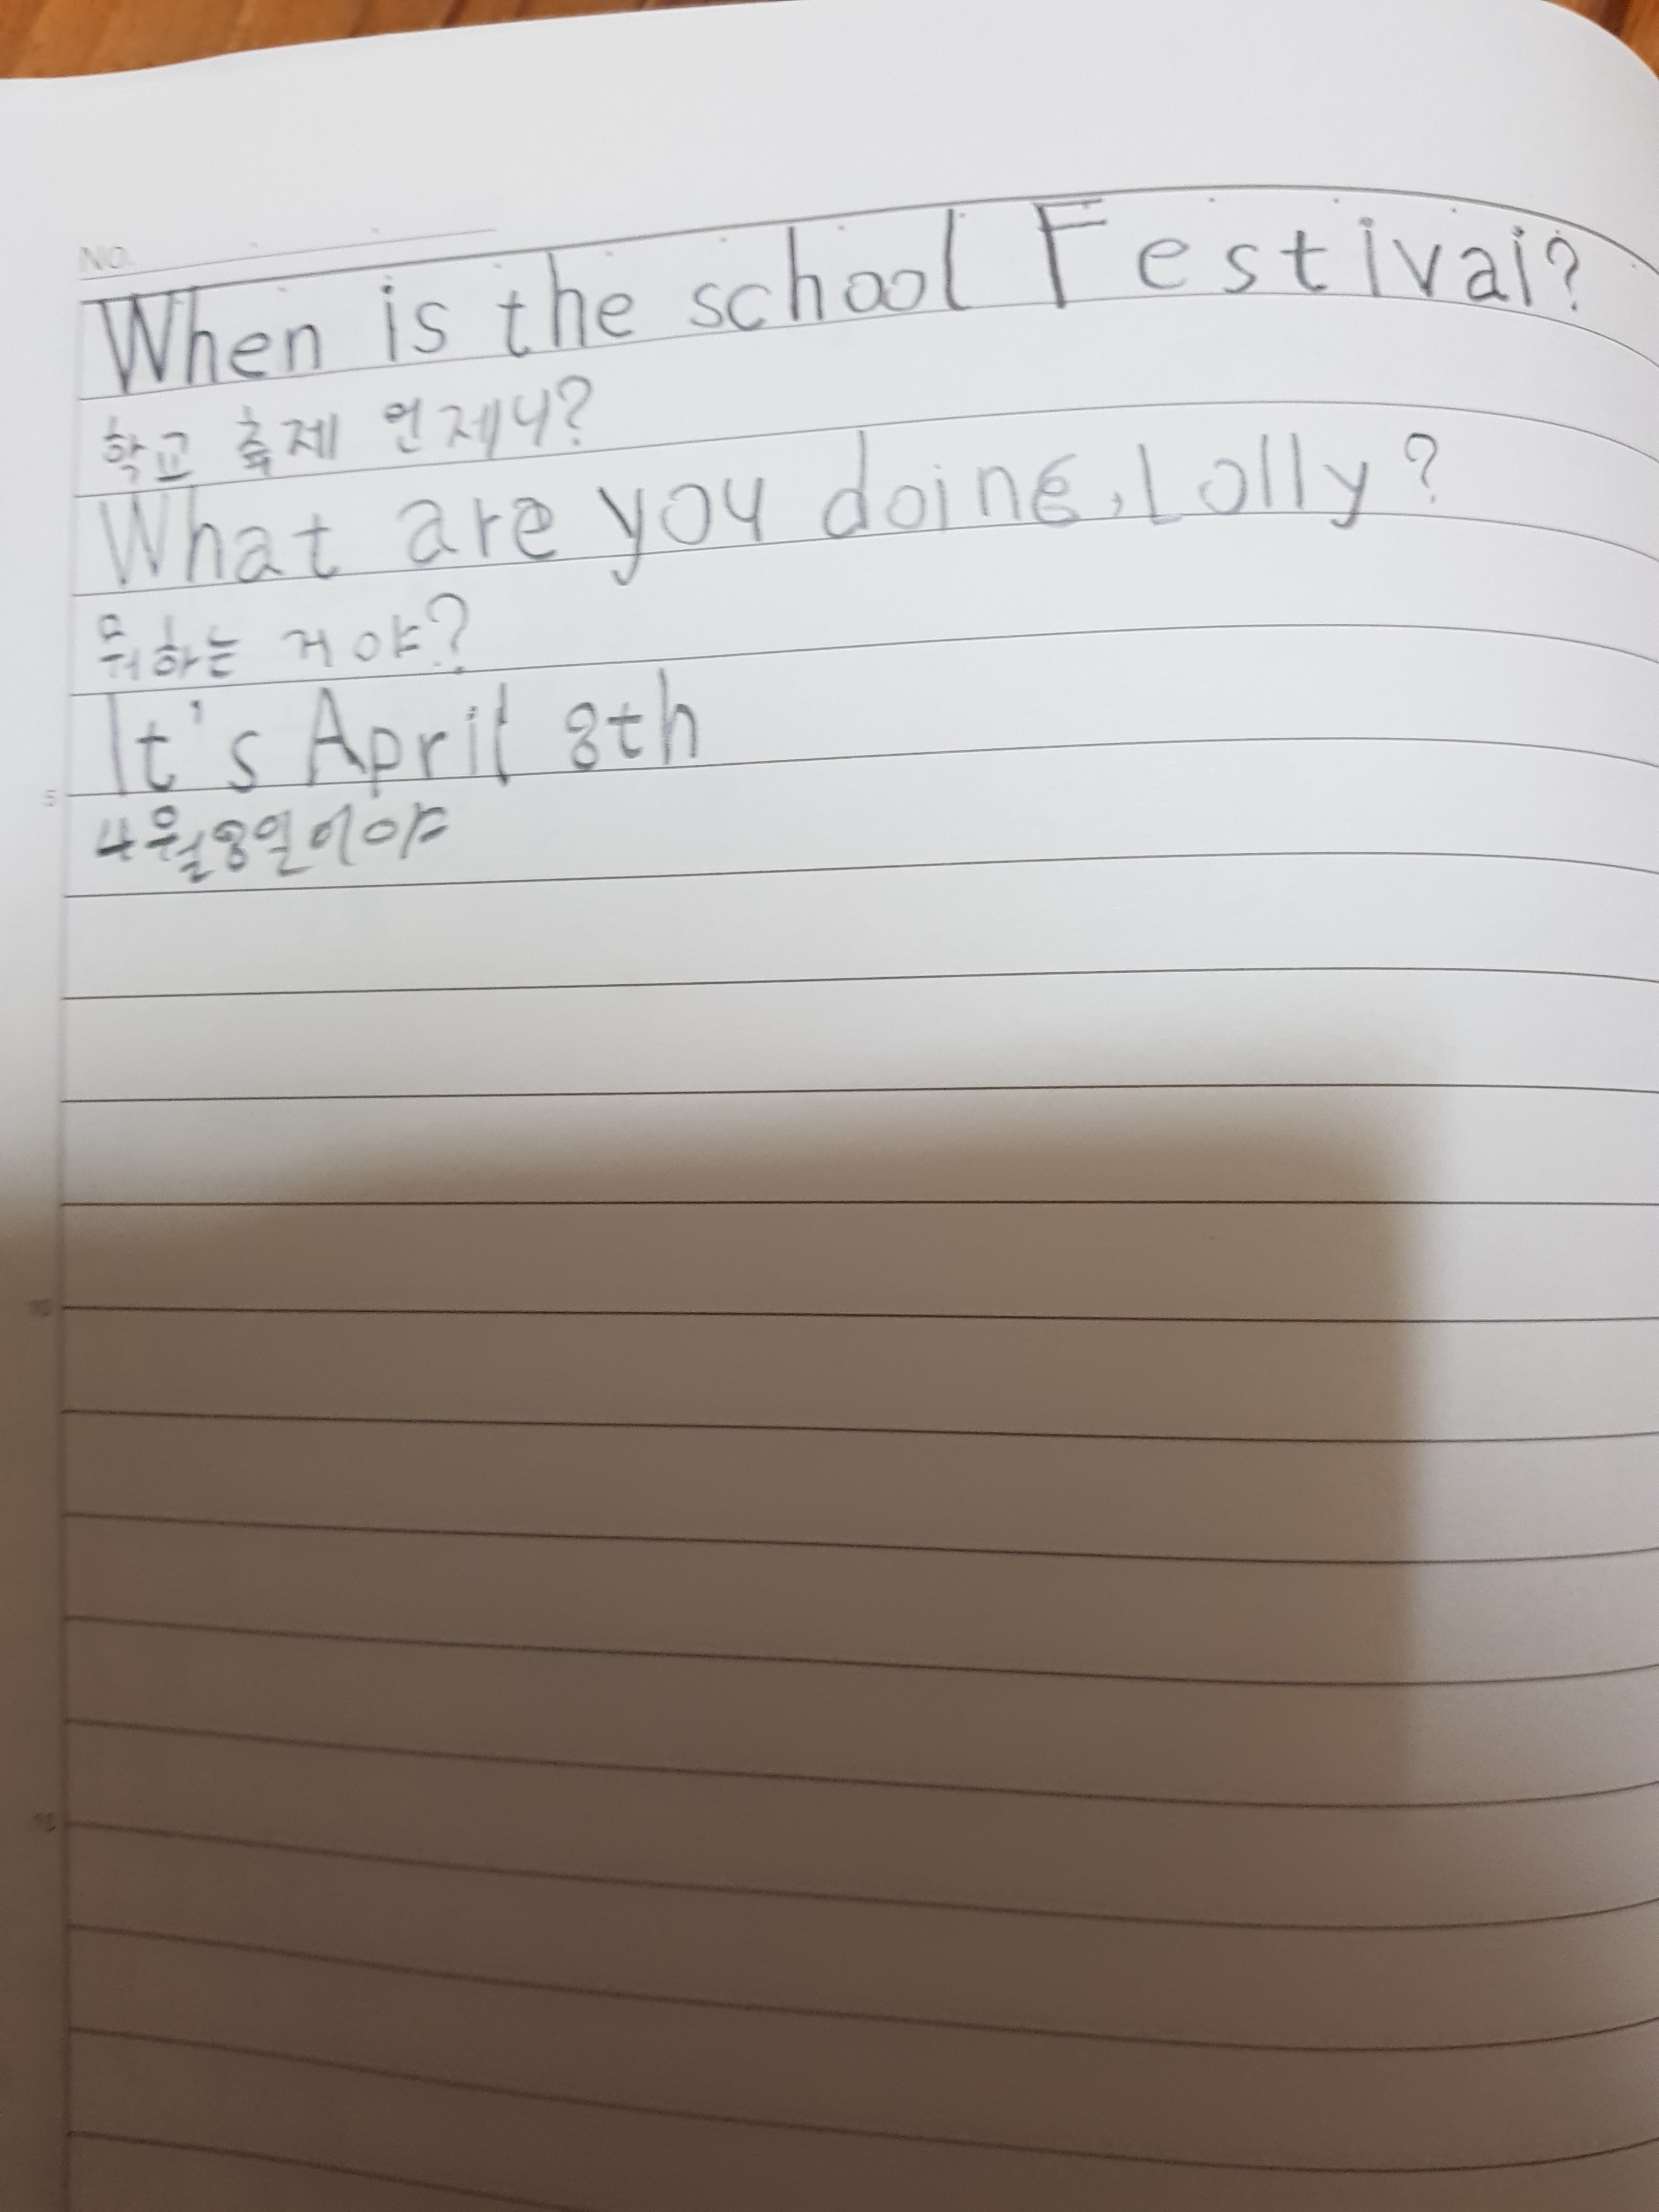 NO.
When is the school Festival?
학교 축제 언제니?
What are you doing, Lolly?
뭐하는 거야?
It's April 8th
5
4월8일이야
10
15